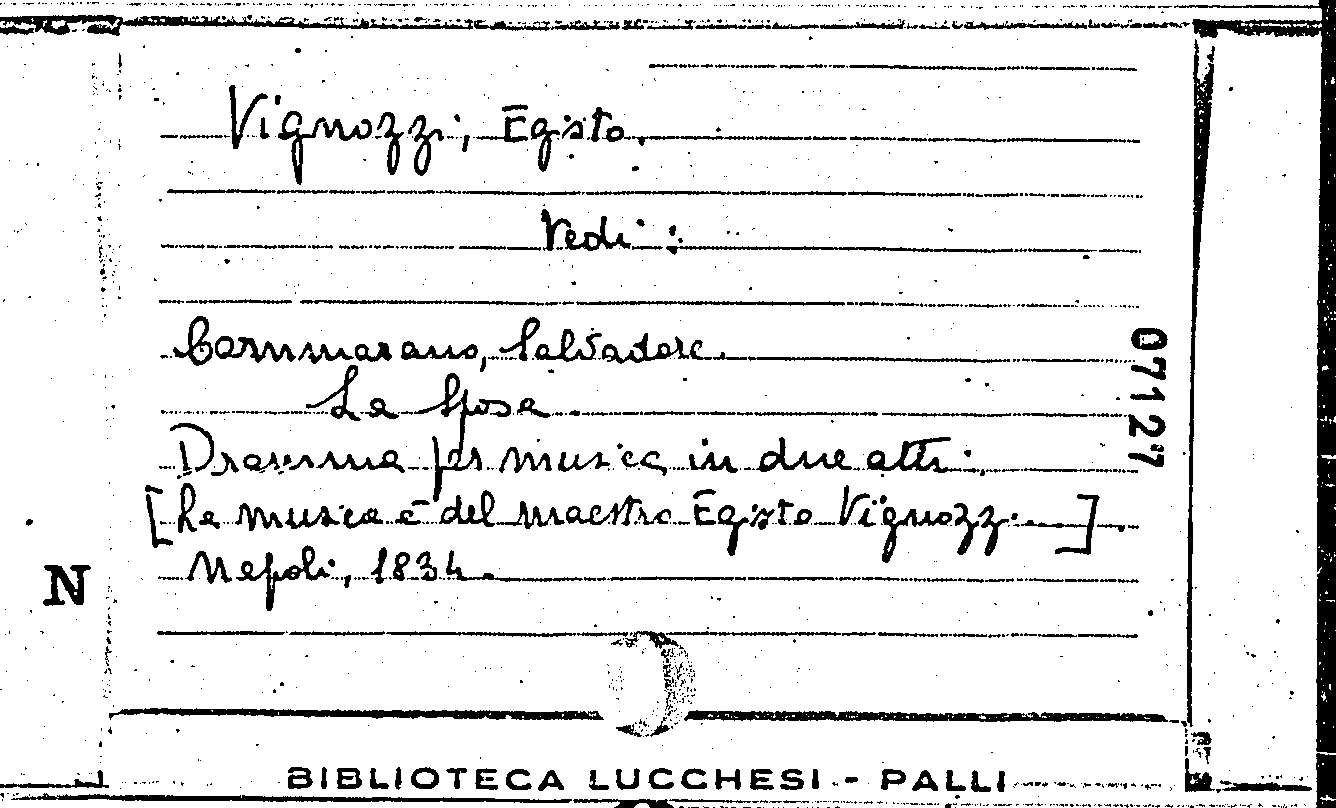 Vignozzi, Egisto.
Vedi:
Cammarano, Salvadore.
La Sposa.
Dramma per musica in due atti.
[La musica è del maestro Egisto Vignozzi....].
Napoli, 1834.
07127
N
BIBLIOTECA LUCCHESI - PALLI